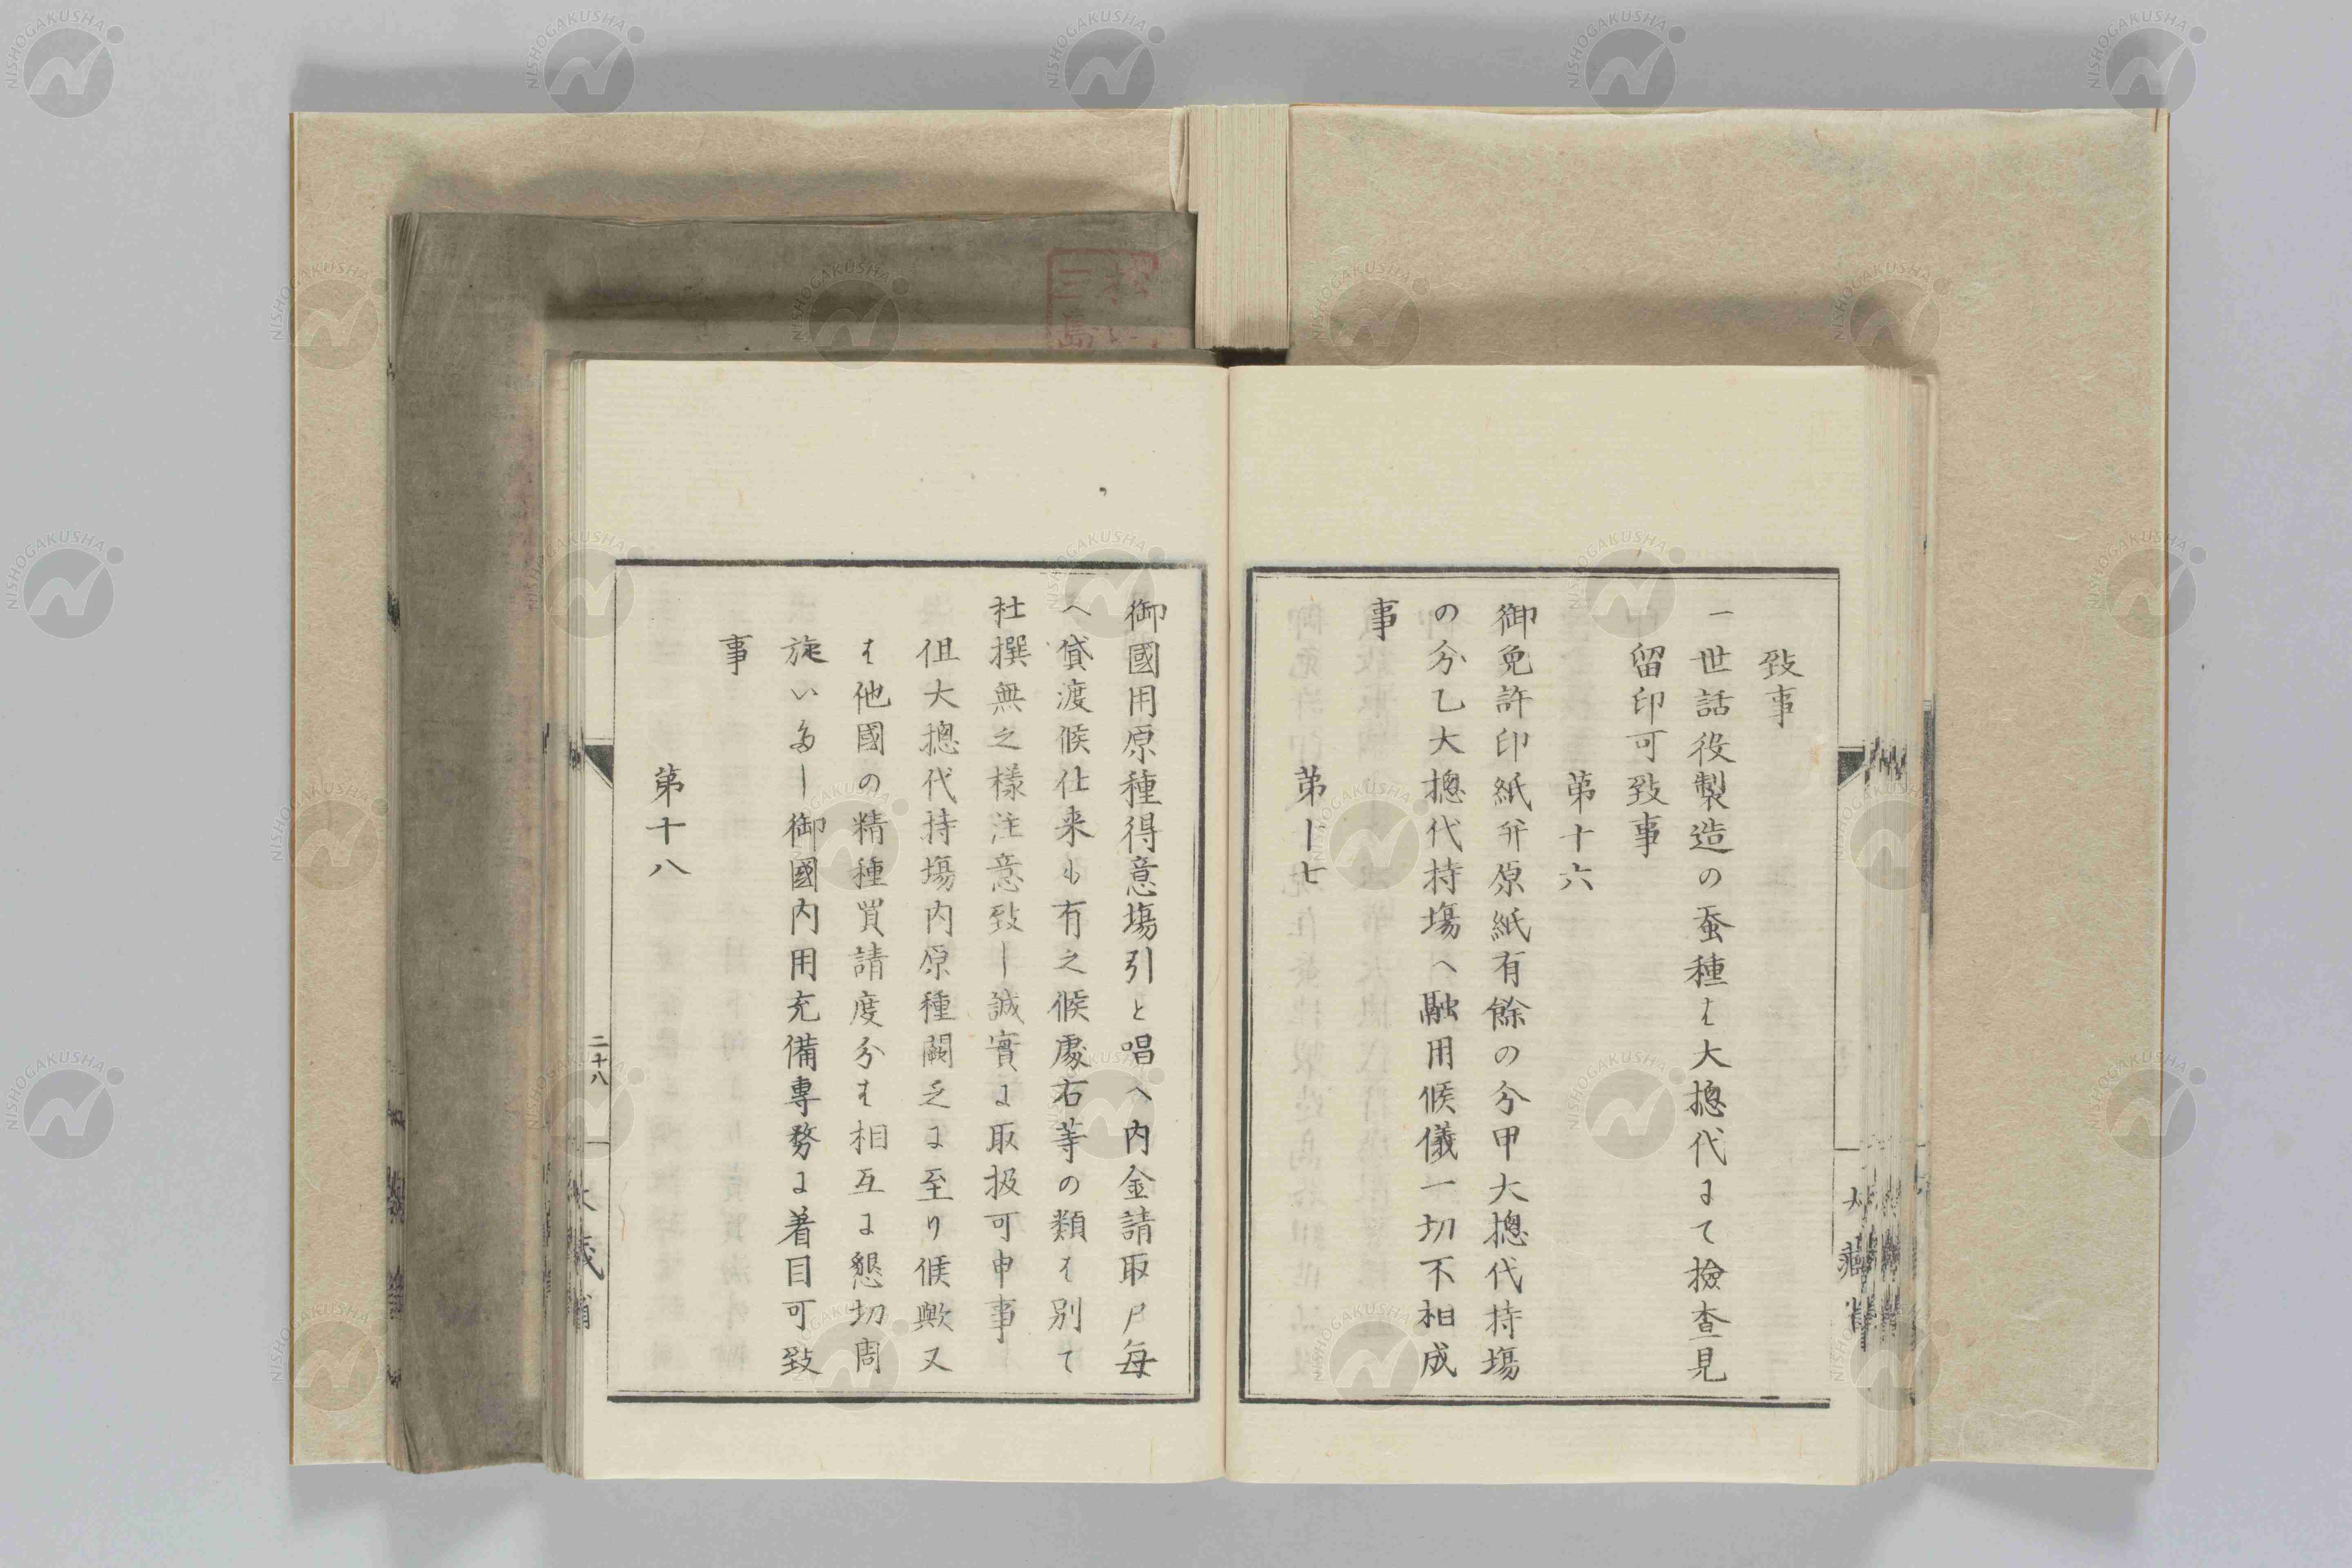 致事
一世話役製造の蚕種は大摠代にて撿査見
留印可致事
第十六
御免許印紙并原紙有餘の分甲大摠代持場
の分乙大摠代持場へ融用候儀一切不相成
事
第十七
御國用原種得意場引と唱へ内金請取戸毎
へ貸渡候仕来も有之候處右等の類は別て
杜撰無之様注意致し誠實に取扱可申事
但大摠代持場内原種闕乏に至り候歟又
は他國の精種買請度分は相互に懇切周
旋いたし御國内用充備專務に着目可致
事
第十八
二十八
NISHOGAKUSHA